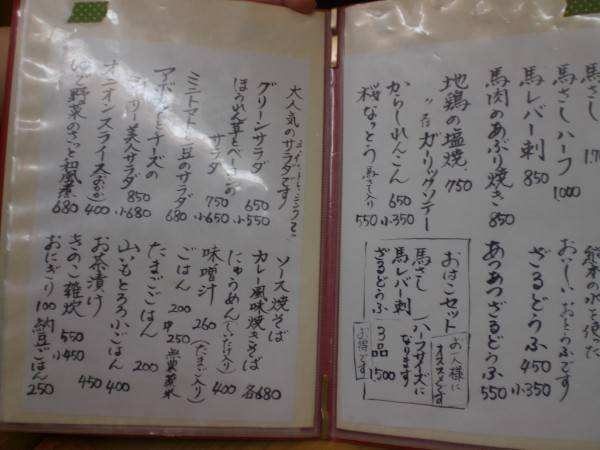 馬さし 1.70
馬さしハーフ 1,000
馬レバー刺 850
馬肉のあぶり焼き 850
地鶏の塩焼 750
〃 ガーリックソテー
からしれんこん 650 小350
桜なっとう 馬さし入り 550
熊本の水を使った
おいしいおとうふです
ざるどうふ 450 小350
あつあつざるどうふ 550
おはこセット
お一人様に
オススメです
馬さし
馬レバー刺
ざるどうふ
ハーフサイズに
なります
3品 1,500
お得です
大人気のサラダです
グリーンサラダ 650 小550
ほうれん草とベーコンの
サラダ 750 小650
ミニトマトと豆のサラダ 680
アボカドとチーズの
美人サラダ 850 小680
オニオンスライス(おかか) 400
ゆで野菜のさっと和風煮 680
ソース焼そば
カレー風味焼きそば 各680
にゅうめん(しいたけ入り) 400
味噌汁 260 (たまご入り)
ごはん 200 中250
たまごごはん 200
山いもとろろ小ごはん 400
お茶漬け 450
きのこ雑炊 550 小450
おにぎり 100 納豆ごはん 250